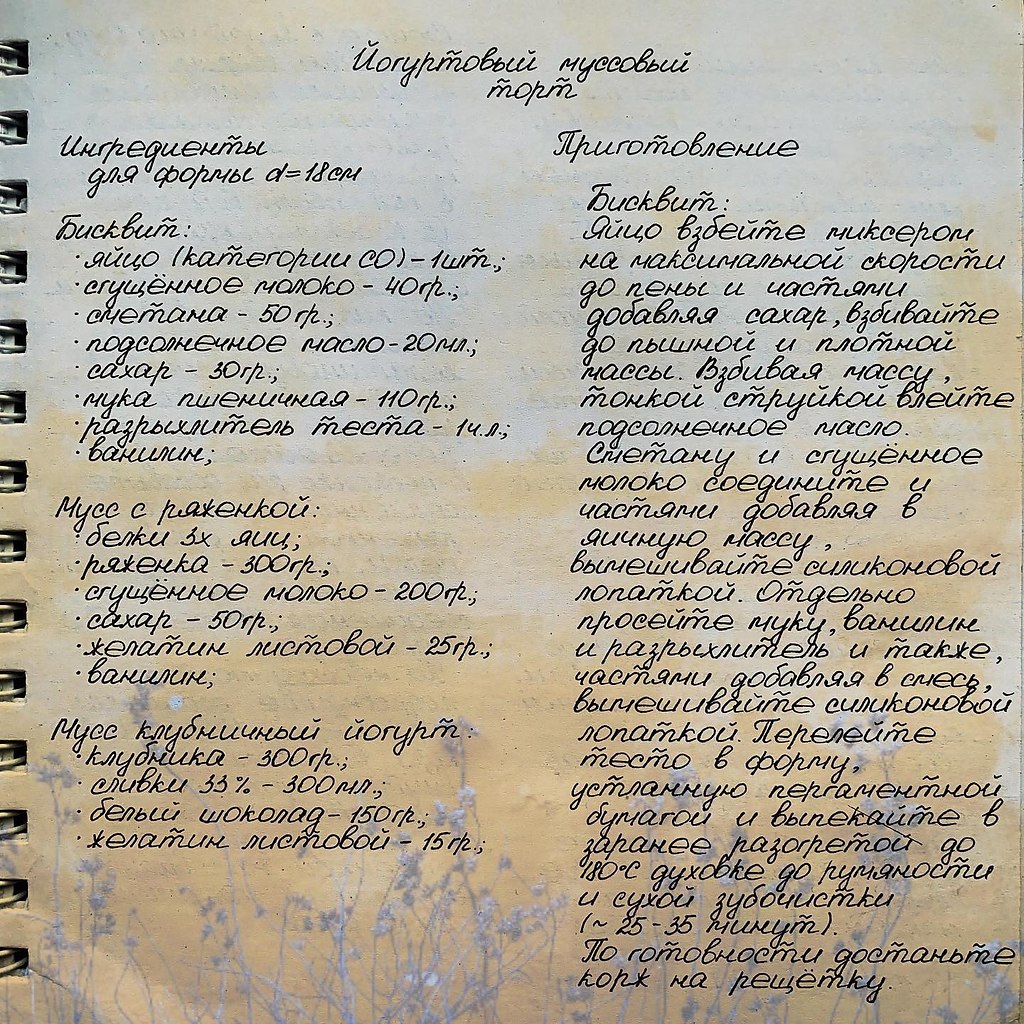 Йогуртовый муссовый
торт
Ингредиенты
для формы d=18см
Бисквит:
· яйцо (категории СО) - 1шт.;
· сгущённое молоко - 40гр.;
· сметана - 50гр.;
· подсолнечное масло - 20мл.;
· сахар - 30гр.;
· мука пшеничная - 110гр.;
· разрыхлитель теста - 1ч.л.;
· ванилин;
Мусс с ряженкой:
· белки 3х яиц;
· ряженка - 300гр.;
· сгущённое молоко - 200гр.;
· сахар - 50гр.;
· желатин листовой - 25гр.;
· ванилин;
Мусс клубничный йогурт:
· клубника - 300гр.;
· сливки 33% - 300мл.;
· белый шоколад - 150гр.;
· желатин листовой - 15гр.;
Приготовление
Бисквит:
Яйцо взбейте миксером
на максимальной скорости
до пены и частями
добавляя сахар, взбивайте
до пышной и плотной
массы. Взбивая массу,
тонкой струйкой влейте
подсолнечное масло.
Сметану и сгущённое
молоко соедините и
частями добавляя в
яичную массу,
вымешивайте силиконовой
лопаткой. Отдельно
просейте муку, ванилин
и разрыхлитель и также,
частями добавляя в смесь,
вымешивайте силиконовой
лопаткой. Перелейте
тесто в форму,
устланную пергаментной
бумагой и выпекайте в
заранее разогретой до
180°С духовке до румяности
и сухой зубочистки
(~ 25-35 минут).
По готовности достаньте
корж на решётку.